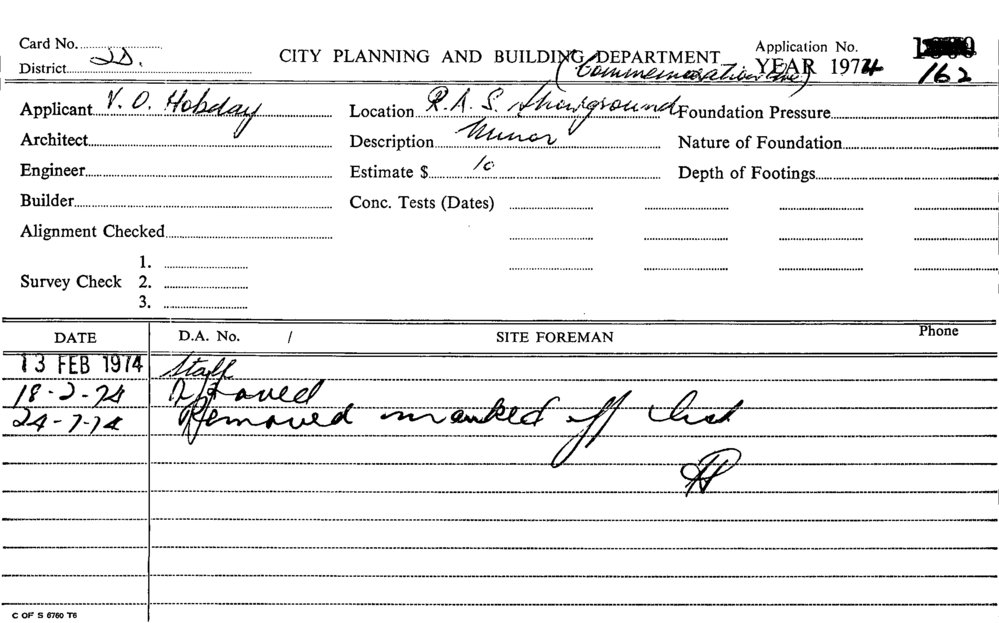 Card No.
District 2D.
CITY PLANNING AND BUILDING DEPARTMENT
(Commemoration Ave)
Application No.
YEAR 1974
162
Applicant V. O. Hobday
Location R.A.S. Showground
Foundation Pressure
Architect
Description Minor
Nature of Foundation
Engineer
Estimate $ 10
Depth of Footings
Builder
Conc. Tests (Dates)
Alignment Checked
Survey Check
1.
2.
3.
DATE D.A. No. / SITE FOREMAN Phone
13 FEB 1974 Staff
18-2-74 Approved
24-7-74 Removed marked off list
C OF S 6760 T6